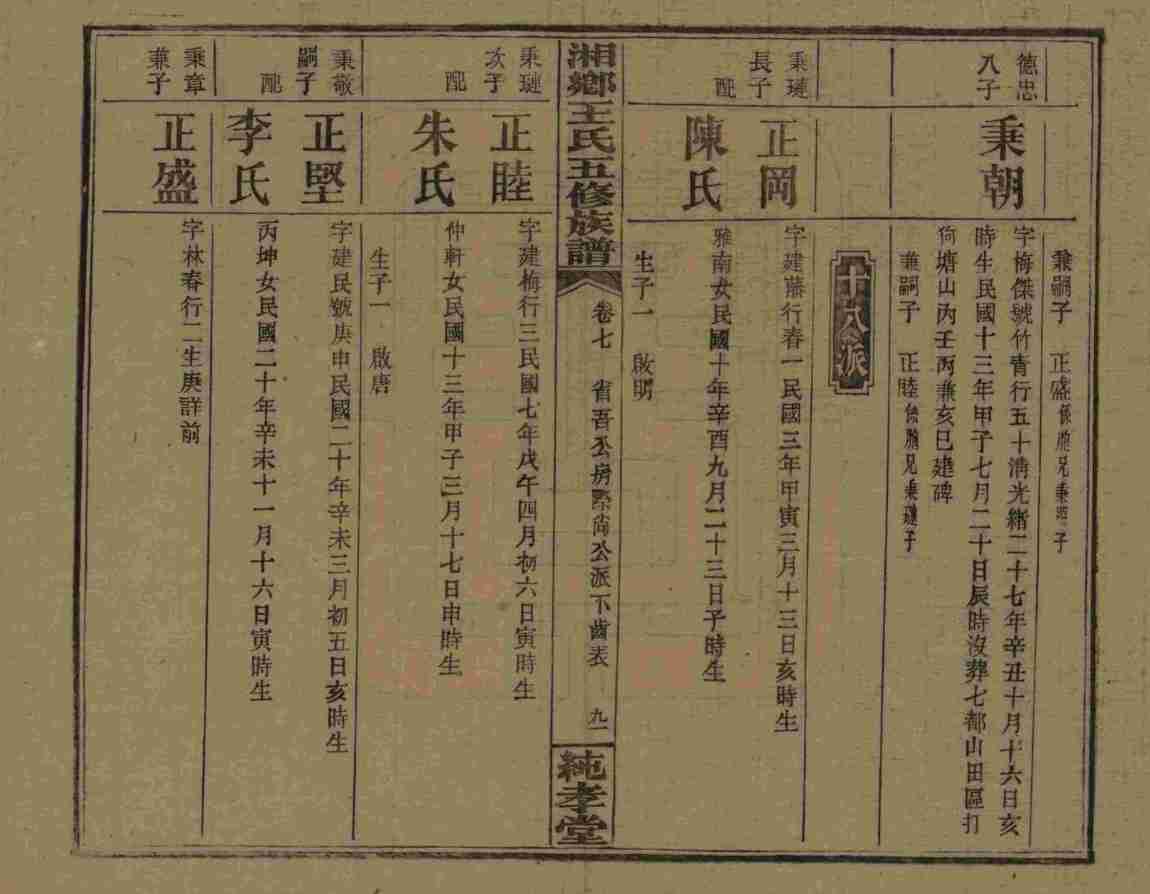 兼嗣子 正盛係胞兄秉璋子
德忠
八子
秉朝
字梅傑號竹青行五十清光緒二十七年辛丑十月十六日亥
時生民國十三年甲子七月二十日辰時沒葬七都山田區打
狗塘山丙壬丙兼亥巳建碑
兼嗣子 正睦係胞兄秉璉子
十八派
秉璉
長子
正岡
字建藩行春一民國三年甲寅三月十三日亥時生
配
陳氏
雅南女民國十年辛酉九月二十三日子時生
生子一 啟明
湘鄉王氏五修族譜
卷七 省吾公房際尚公派下齒表 九一
純孝堂
秉璉
次子
正睦
字建梅行三民國七年戊午四月初六日寅時生
配
朱氏
仲軒女民國十三年甲子三月十七日申時生
生子一 啟唐
秉敬
嗣子
正堅
字建民號庚申民國二十年辛未三月初五日亥時生
配
李氏
丙坤女民國二十年辛未十一月十六日寅時生
秉章
兼子
正盛
字林春行二生庚詳前